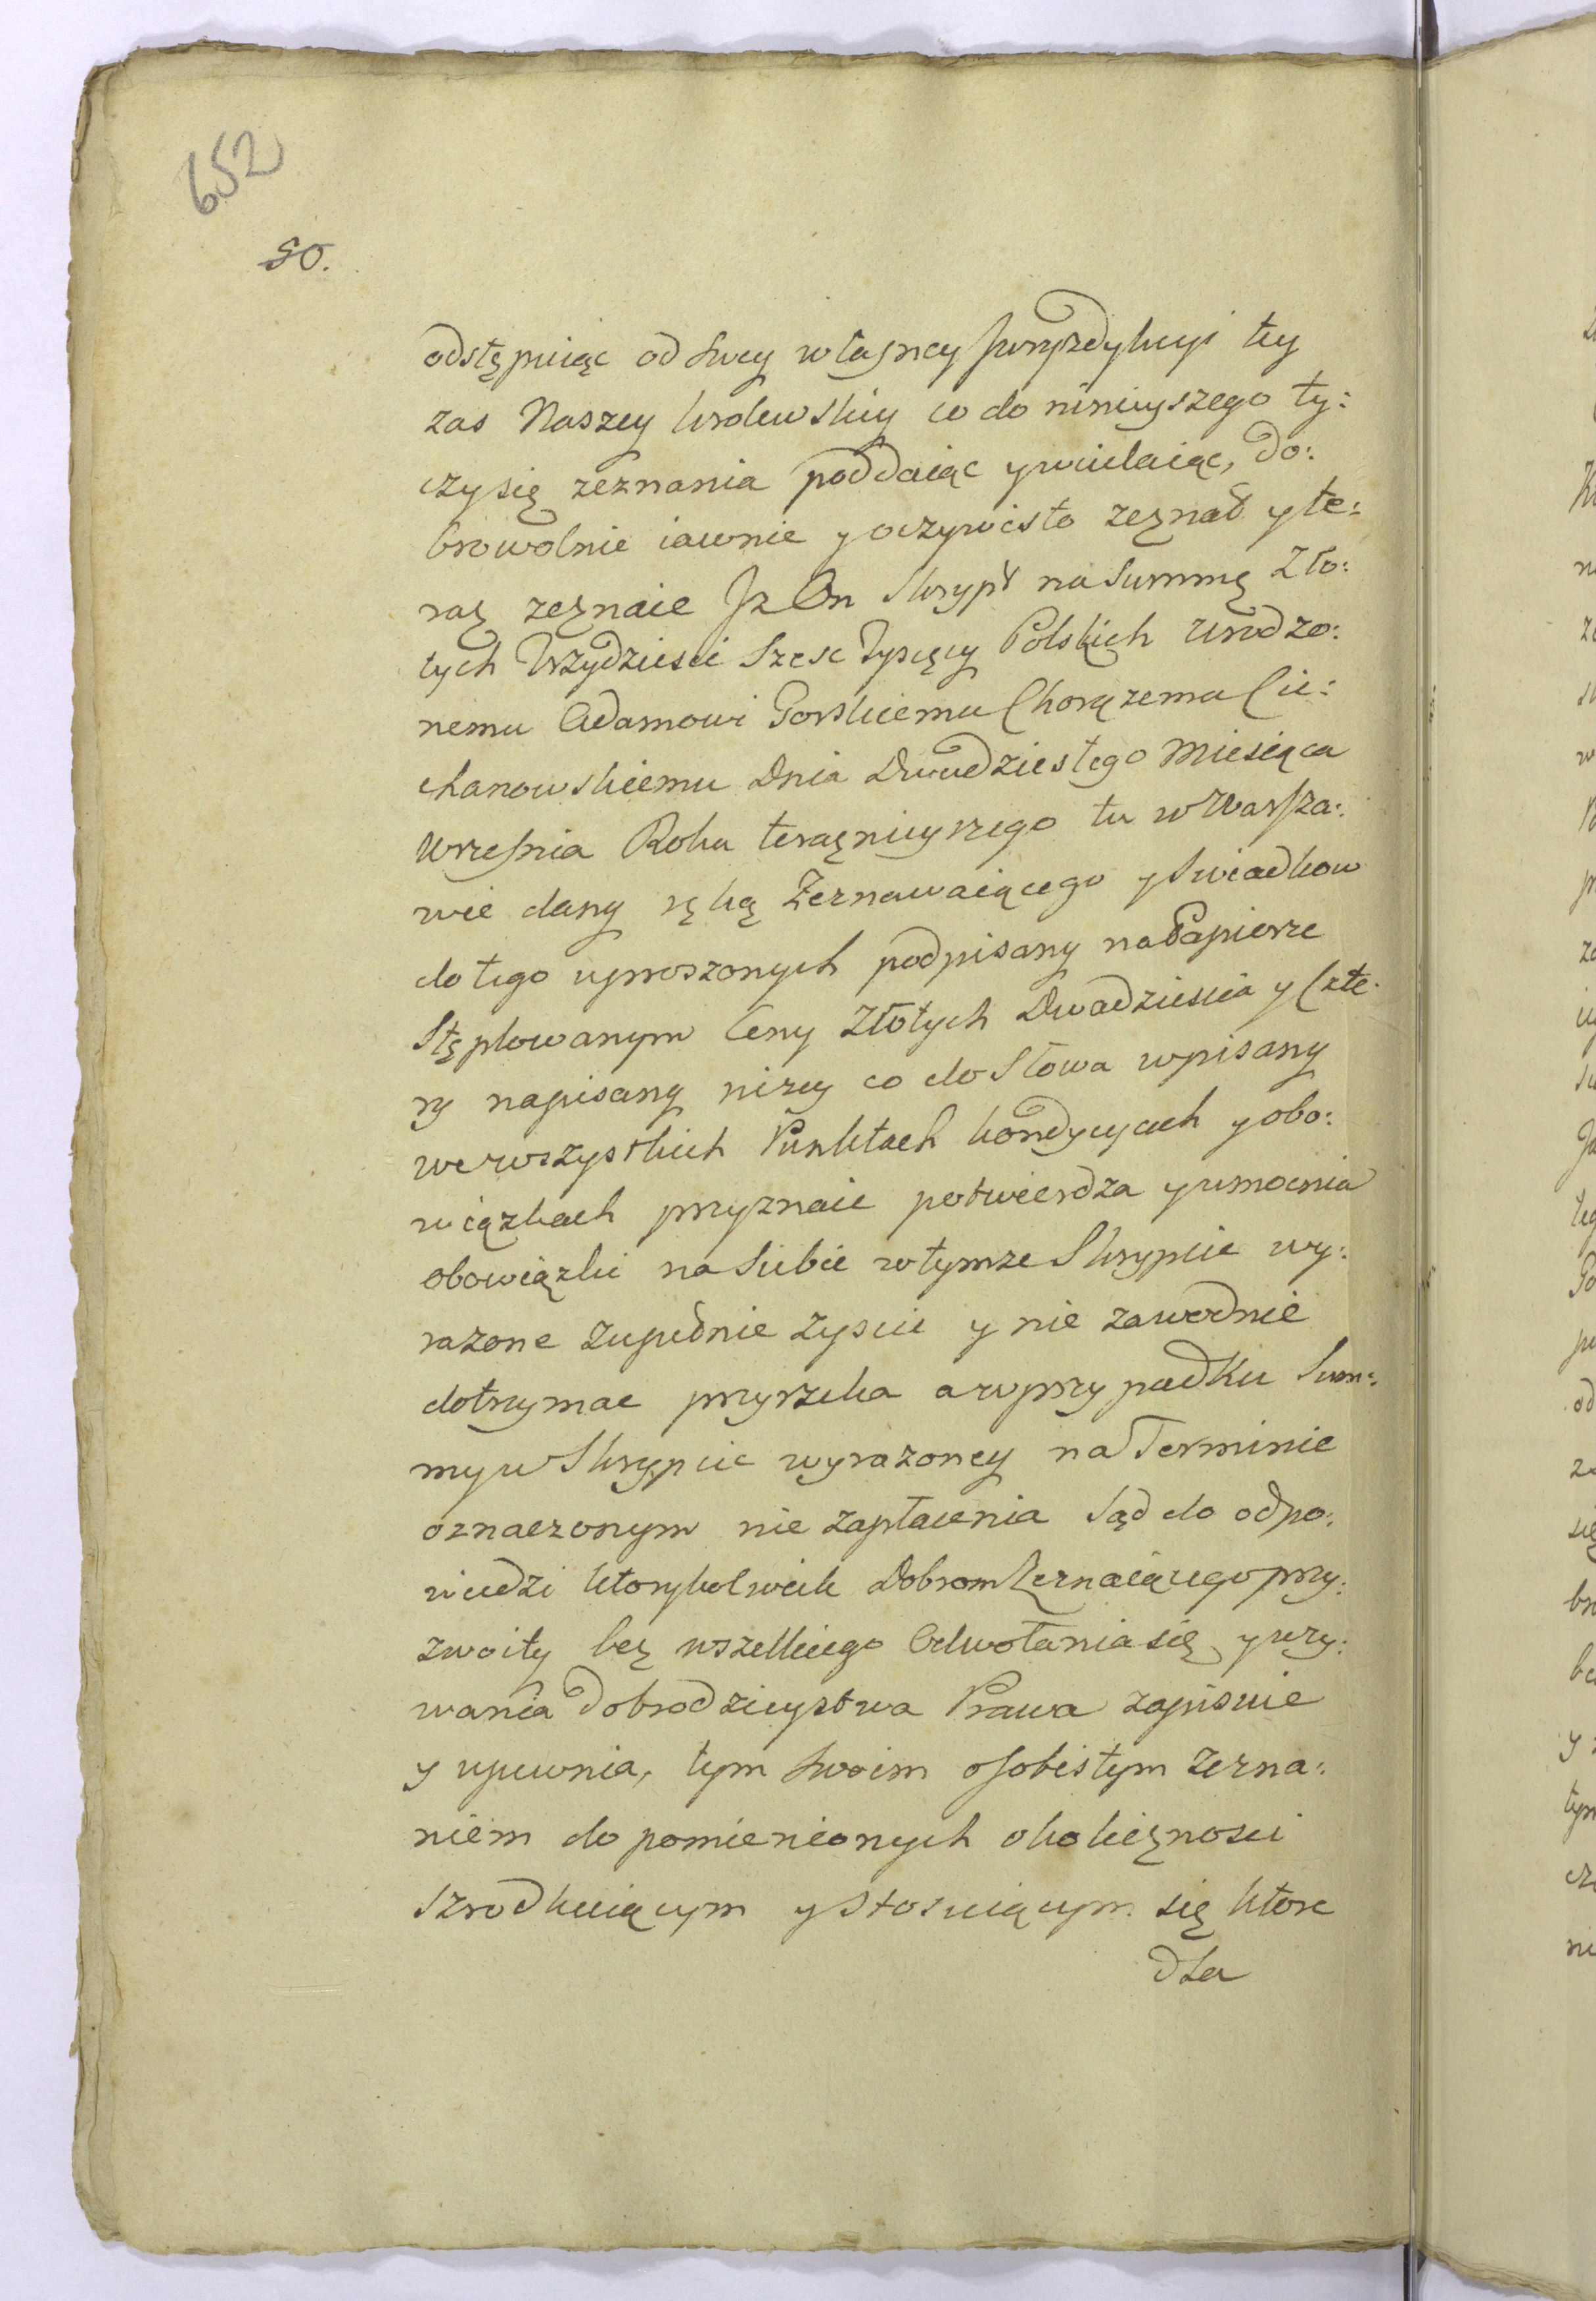 652
50.
odstępuiąc od swey własney Juryzdykcyi tey
zas Naszey krolewskiey co do ninieyszego ty:
czy się zeznania poddaiąc y wcielaiąc, do:
browolnie iawnie y oczywisto zeznał y te:
raz zeznaie Jz On Skrypt na Summę Zło:
tych Trzydziesci Szesc Tysięcy Polskich Urodzo:
nemu Adamowi Gorskiemu Chorązemu Cie:
chanowskiemu Dnia Dwudziestego Miesiąca
Wrzesnia Roku teraznieyszego tu w Warsza:
wie dany ręką Zeznawaiącego y Swiadkow
do tego uproszonych podpisany na Papierze
Stęplowanym Ceny Złotych Dwadziescia y Czte:
ry napisany nizey co do Słowa wpisany
we wszystkich Punktach kondycyach y obo:
wiązkach przyznaie potwierdza y umocnia
obowiązki na Siebie w tymze Skrypcie wy:
razone zupełnie zyscic y nie zawodnie
dotrzymac przyrzeka a w przypadku Sum:
my w Skrypcie wyrazoney na Terminie
oznaczonym nie zapłacenia Sąd do odpo:
wiedzi ktorykolwiek Dobrom Zeznaiącego przy:
zwoity bez wszelkiego Odwołania się y uzy:
wania Dobrodzieystwa Prawa zapisuie
y upewnia, tym Swoim osobistym Zezna:
niem do pomienionych okolicznosci
Szrodkuiącym y Stosuiącym się ktore
dla